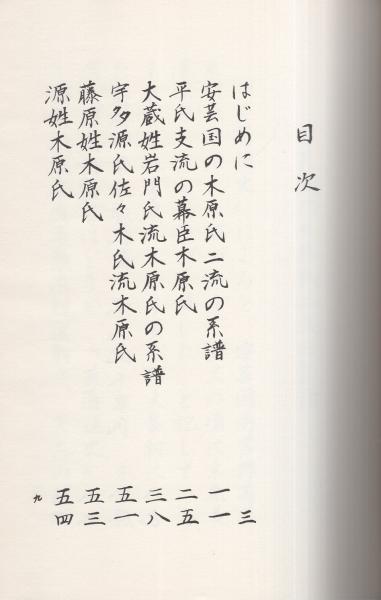 目次
はじめに 三
安芸国の木原氏二流の系譜 一一
平氏支流の幕臣木原氏 二五
大蔵姓岩門氏流木原氏の系譜 三八
宇多源氏佐々木氏流木原氏 五一
藤原姓木原氏 五三
源姓木原氏 五四
九